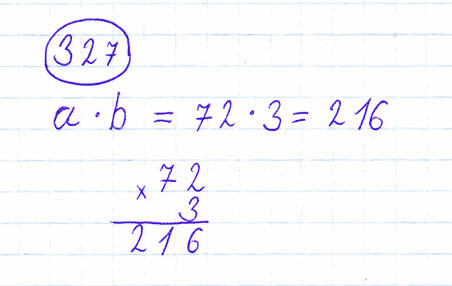 327
a · b = 72 · 3 = 216
× 72
3
216